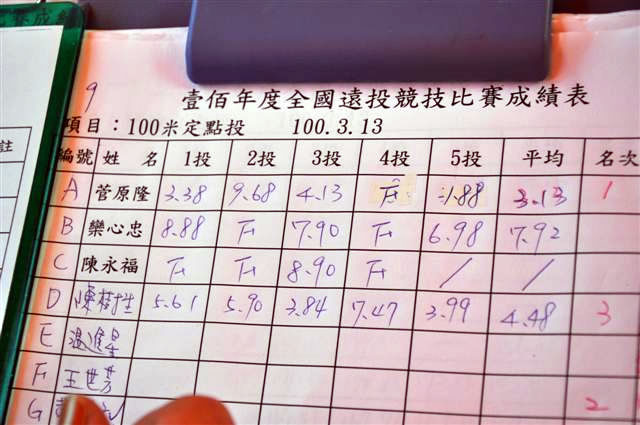 9
壹佰年度全國遠投競技比賽成績表
項目：100米定點投 100.3.13
編號 姓名 1投 2投 3投 4投 5投 平均 名次
A 菅原隆 3.38 9.68 4.13 F 1.88 3.13 1
B 欒心忠 8.88 F 7.90 F 6.98 7.92
C 陳永福 F F 8.90 F / /
D 陳 5.61 5.90 3.84 7.47 3.99 4.48 3
E 溫進星
F 王世芳
G 2
註